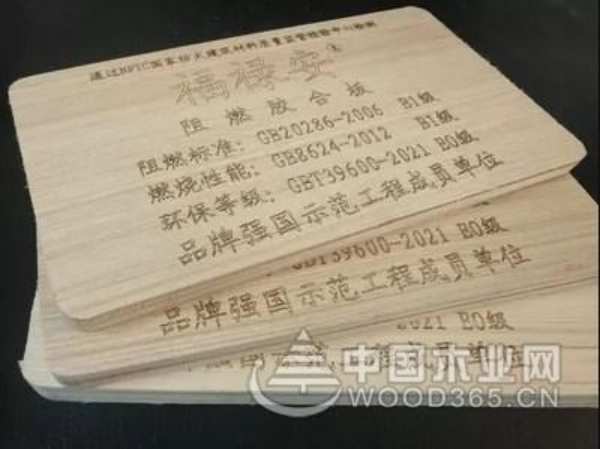 通过NFTC国家防火建筑材料质量监督检验中心检测
福禄安®
阻燃胶合板
阻燃标准：GB20286-2006 B1级
燃烧性能：GB8624-2012 B1级
环保等级：GBT39600-2021 B0级
品牌强国示范工程成员单位
GBT39600-2021 B0级
品牌强国示范工程成员单位
2021 B0级
成员单位
中国木业网
WOOD365.CN